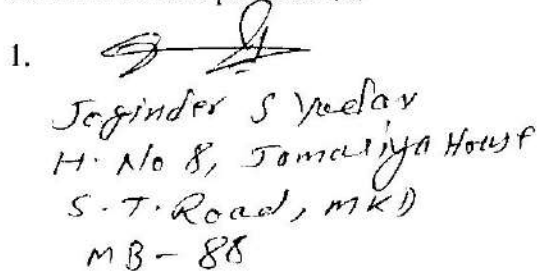 1.
Joginder S Yadav
H. No 8, Jomariya House
S.T. Road, MKD
MB - 88